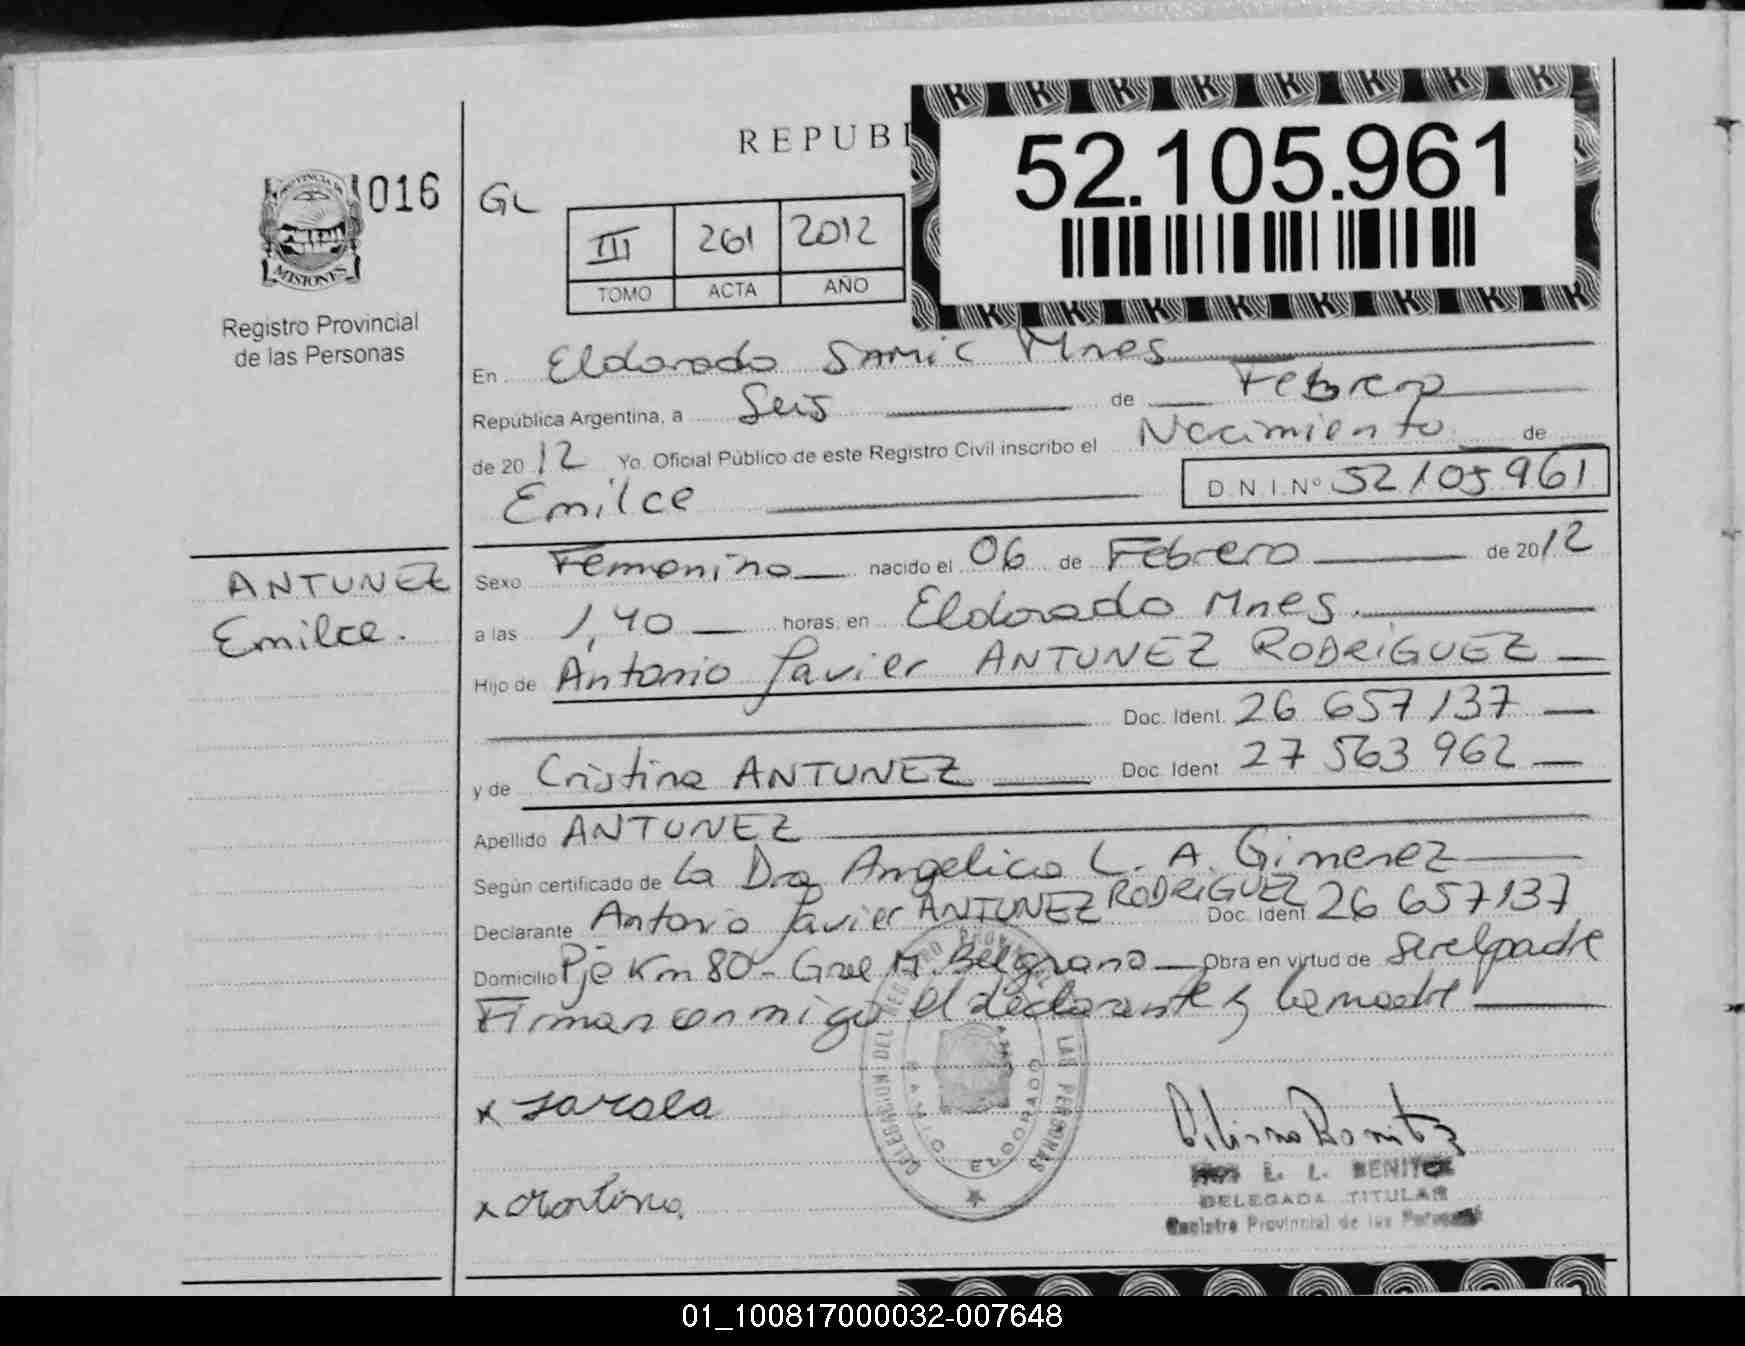 REPUBI
52.105.961
PROVINCIA DE
MISIONES
016
GL
III 261 2012
TOMO ACTA AÑO
Registro Provincial
de las Personas
En Eldorado SAMIC Mnes
República Argentina, a Seis de Febrero
de 2012 Yo. Oficial Público de este Registro Civil inscribo el Nacimiento de
Emilce D.N.I.Nº 52105961
ANTUNEZ
Emilce.
Sexo Femenino nacido el 06 de Febrero de 2012
a las 1,40 horas, en Eldorado Mnes.
Hijo de Antonio Javier ANTUNEZ RODRIGUEZ
Doc. Ident. 26 657 137
y de Cristina ANTUNEZ Doc. Ident 27 563 962
Apellido ANTUNEZ
Según certificado de La Dra Angelica L. A. Gimenez
Declarante Antonio Javier ANTUNEZ RODRIGUEZ Doc. Ident 26 657137
Domicilio Pje Km 80 - Gral M. Belgrano Obra en virtud de ser el padre
Firman conmigo el declarante y la madre
DELEGACION DEL REGISTRO LAS PERSONAS
SAMIC ELDORADO
x
x
E. L. BENITEZ
DELEGADA TITULAR
Registro Provincial de las Personas
01_100817000032-007648